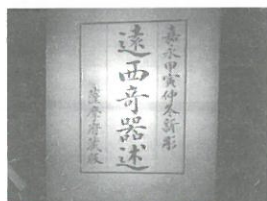 嘉永甲寅仲冬新彫
遠西奇器述
薩摩府藏版